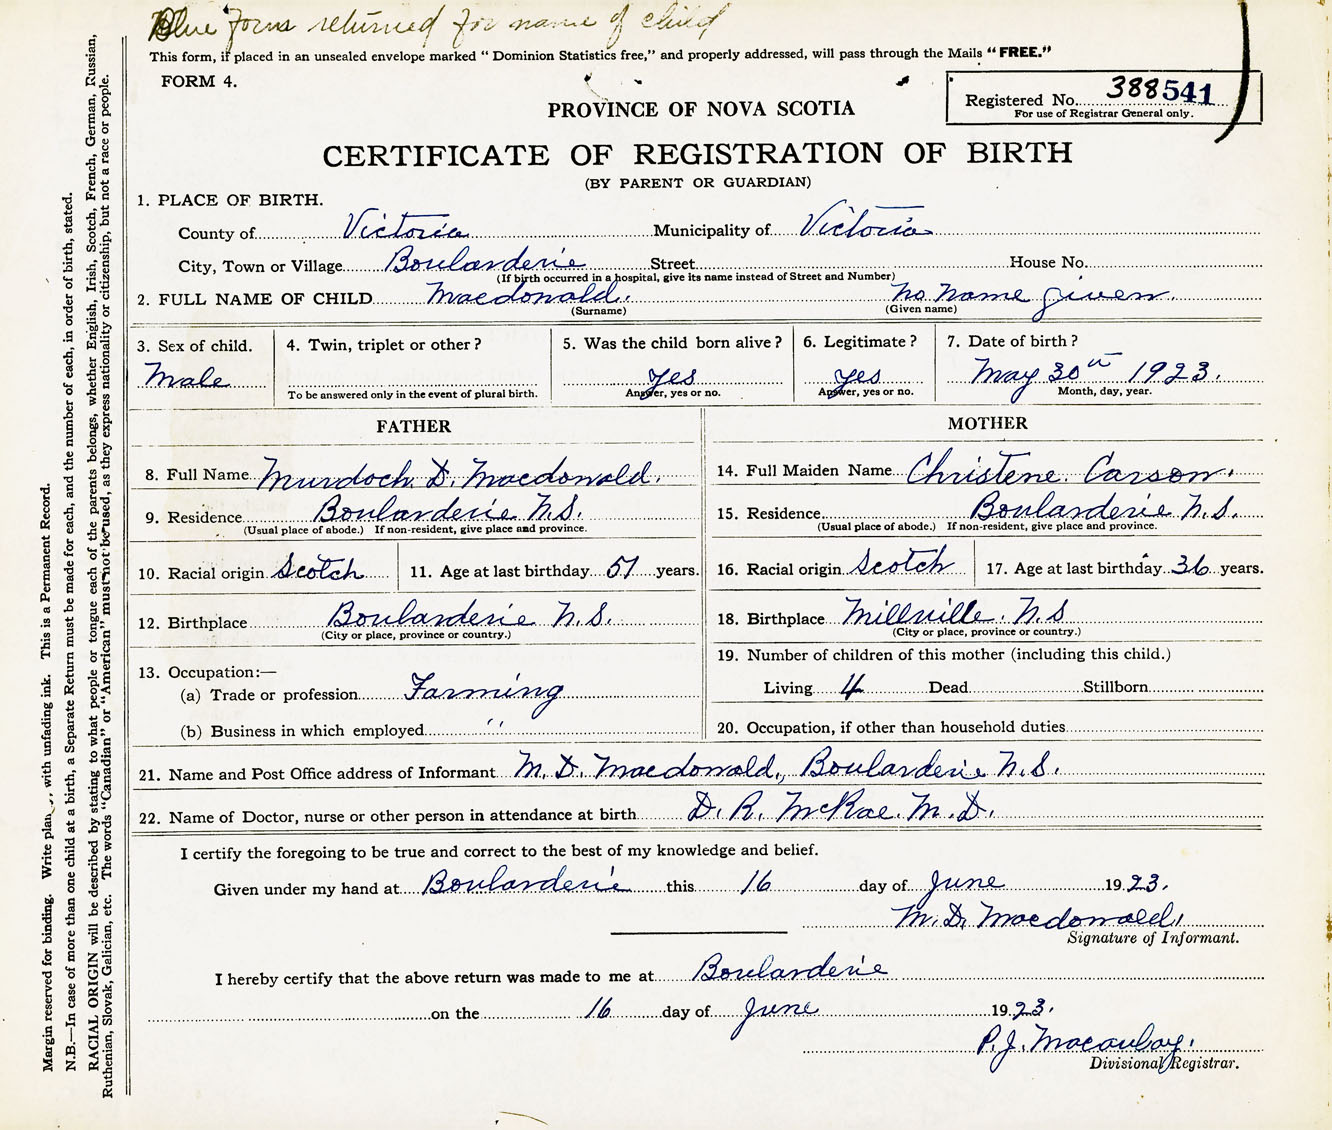 Blue form returned for name of child
This form, if placed in an unsealed envelope marked “ Dominion Statistics free,” and properly addressed, will pass through the Mails “ FREE.”
FORM 4.
Registered No. 388541
For use of Registrar General only.
PROVINCE OF NOVA SCOTIA
CERTIFICATE OF REGISTRATION OF BIRTH
(BY PARENT OR GUARDIAN)
1. PLACE OF BIRTH.
County of Victoria Municipality of Victoria
City, Town or Village Boularderie Street House No.
(If birth occurred in a hospital, give its name instead of Street and Number)
2. FULL NAME OF CHILD Macdonald. no name given.
(Surname) (Given name)
3. Sex of child. 4. Twin, triplet or other ? 5. Was the child born alive ? 6. Legitimate ? 7. Date of birth ?
Male yes yes May 30th 1923.
To be answered only in the event of plural birth. Answer, yes or no. Answer, yes or no. Month, day, year.
FATHER MOTHER
8. Full Name Murdoch. D. Macdonald. 14. Full Maiden Name Christene. Carson.
9. Residence Boularderie N.S. 15. Residence Boularderie N.S.
(Usual place of abode.) If non-resident, give place and province. (Usual place of abode.) If non-resident, give place and province.
10. Racial origin Scotch 11. Age at last birthday 51 years. 16. Racial origin Scotch 17. Age at last birthday 36 years.
12. Birthplace Boularderie N.S. 18. Birthplace Millville. N.S
(City or place, province or country.) (City or place, province or country.)
13. Occupation:— 19. Number of children of this mother (including this child.)
(a) Trade or profession Farming Living 4 Dead Stillborn
(b) Business in which employed " 20. Occupation, if other than household duties
21. Name and Post Office address of Informant M. D. Macdonald, Boularderie N.S.
22. Name of Doctor, nurse or other person in attendance at birth D. R. McRae. M. D.
I certify the foregoing to be true and correct to the best of my knowledge and belief.
Given under my hand at Boularderie this 16 day of June 1923.
M. D. Macdonald.
Signature of Informant.
I hereby certify that the above return was made to me at Boularderie
on the 16 day of June 1923.
P. J. Macaulay.
Divisional Registrar.
Margin reserved for binding. Write with unfading ink. This is a Permanent Record.
N.B.—In case of more than one child at a birth, a Separate Return must be made for each, and the number of each, in order of birth, stated.
RACIAL ORIGIN will be described by stating to what people or tongue each of the parents belongs, whether English, Irish, Scotch, French, German, Russian,
Ruthenian, Slovak, Galician, etc. The words “Canadian” or “American” must not be used, as they express nationality or citizenship, but not a race or people.